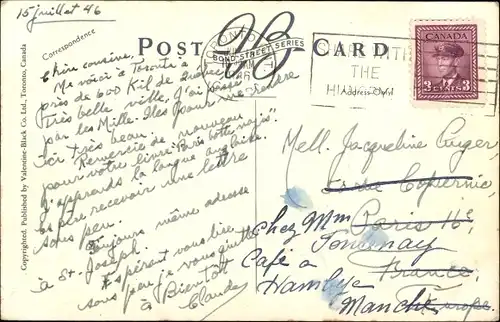 15 juillet 46
Correspondence
POST CARD
BOND STREET SERIES
TORONTO
CANADA
3 CENTS 3
THE
Address Only
Chère cousine,
Me voici à Toronto à
près de 600 Kil de
Très belle ville, J'ai passé
par les Mille-Iles pour me rendre
ici très beau.
Remercie de nouveau
pour votre livre "Paris
J'apprends la langue anglaise.
espère recevoir une lettre
sous peu.
Toujours même adresse
à St-Joseph.
Espérant vous lire
sous peu je vous quitte
à Bientôt
Claude
Mell. Jacqueline Auger
Copernic,
Paris 16e
France
Chez Mm Fontenay
Café à
Hambye
Manche
Europe.
Copyrighted. Published by Valentine-Black Co. Ltd., Toronto, Canada